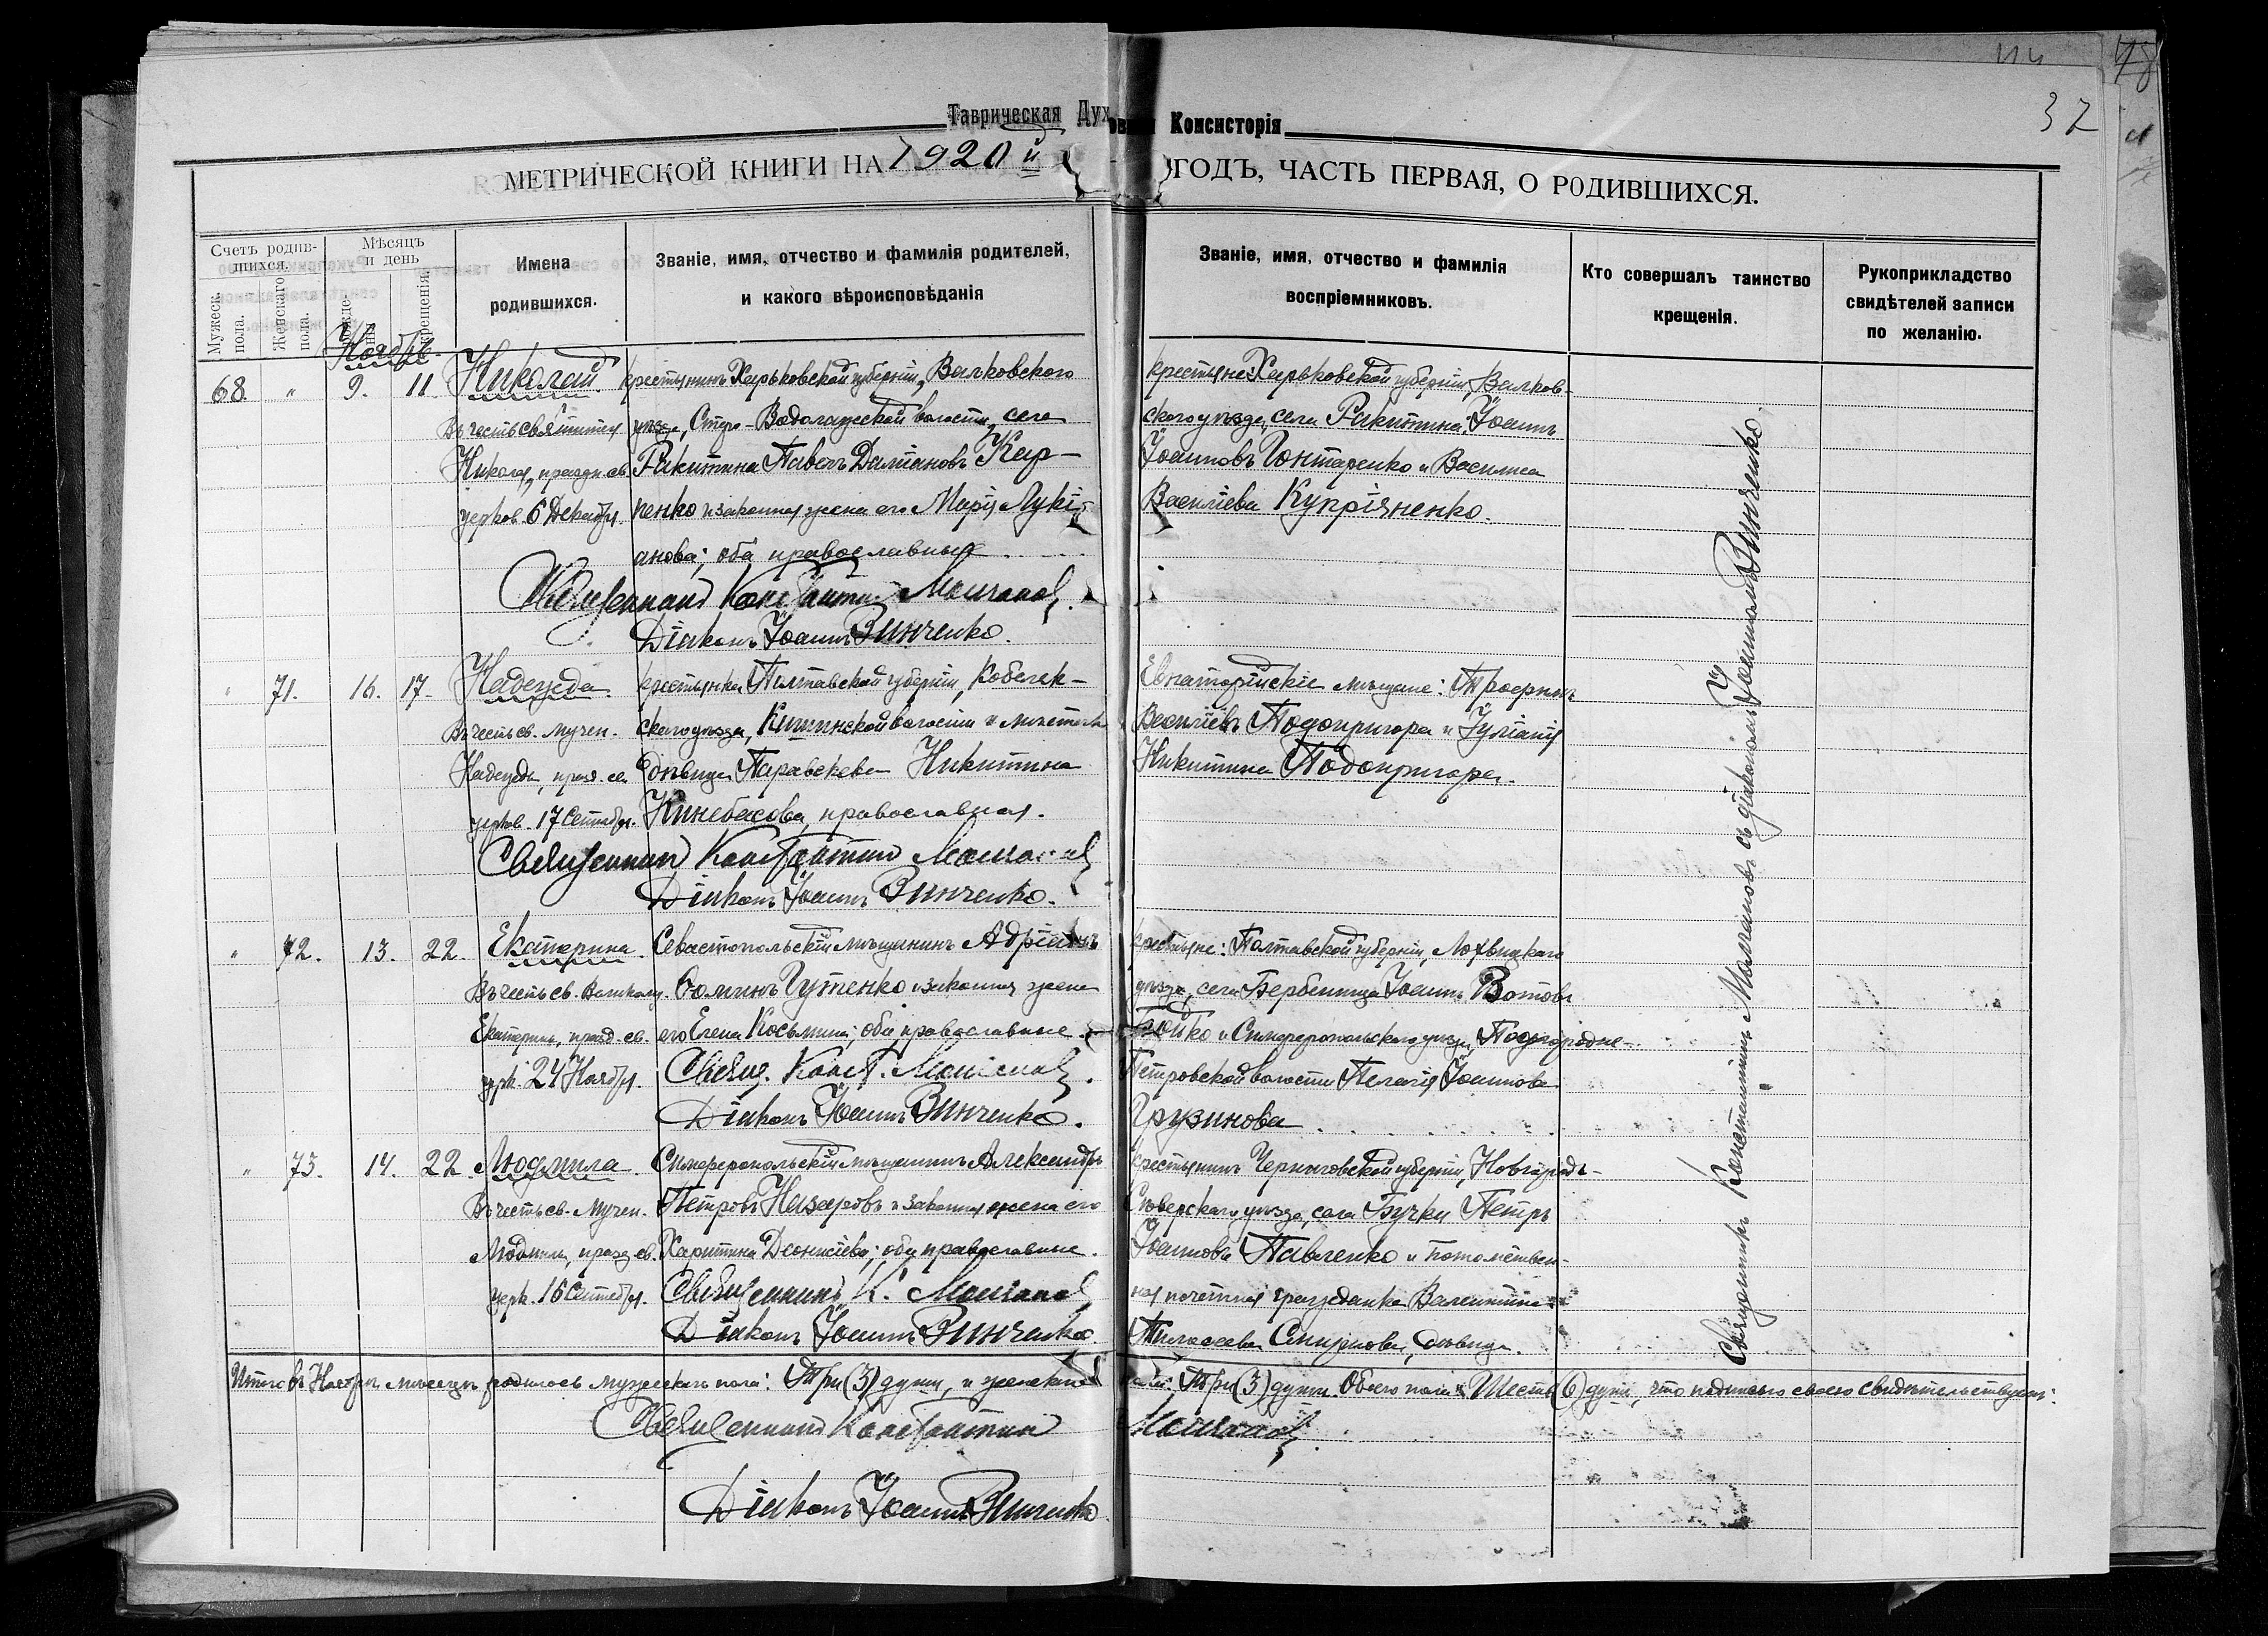 114
78
32
Таврическая Духовная Консисторія
МЕТРИЧЕСКОЙ КНИГИ НА 1920й ГОДЪ, ЧАСТЬ ПЕРВАЯ, О РОДИВШИХСЯ.
Счетъ родив-
шихся.
Мужеск. пола.
Женскаго пола.
Мѣсяцъ
и день
рожде-
нія
крещенія.
Имена
родившихся.
Званіе, имя, отчество и фамилія родителей,
и какого вѣроисповѣданія
Званіе, имя, отчество и фамилія
воспріемниковъ.
Кто совершалъ таинство
крещенія.
Рукоприкладство
свидѣтелей записи
по желанію.
Ноябрь
68. " 9. 11. Николай
Въ честь святителя
Николая, праздн. св.
церков. 6 Декабря.
крестьянинъ Харьковской губерніи, Валковскаго
уѣзда, Старо-Водолажской волости, села
Ракитина Павелъ Даміановъ Кар-
пенко и законная жена его Марія Лукі-
анова; оба православные
Священникъ Константинъ Молчановъ.
Діаконъ Іоаннъ Винченко.
крестьяне: Харьковской губерніи, Валков-
скаго уѣзда, села Ракитина: Іоаннъ
Іоанновъ Гонтаренко и Васса
Василіева Купріяненко.
" 71. 16. 17. Надежда
Въ честь св. мучен.
Надежды, празд. св.
церков. 17 Сентября.
крестьянка Полтавской губерніи, Кобеляк-
скаго уѣзда, Кишинской волости и мѣстечка
дѣвица Параскева Никитина
Кинебасова, православная.
Священникъ Константинъ Молчановъ
Діаконъ Іоаннъ Винченко.
Евпаторійскіе мѣщане: Трофимъ
Василіевъ Подопригора и Іуліанія
Никитина Подопригора.
" 72. 13. 22. Екатерина.
Въ честь св. Великому.
Екатерины, празд. св.
церк. 24 Ноября.
Севастопольскій мѣщанинъ Адріанъ
Ѳоминъ Гутенко и законная жена
его Елена Косьмина; оба православные.
Свящ. Конст. Молчановъ.
Діаконъ Іоаннъ Винченко.
крестьяне: Полтавской губерніи, Лохвицкаго
уѣзда, села Бербеницы Іоаннъ
Бойко и Симферопольскаго уѣзда, Подгородне-
Петровской волости Пелагія Іоаннова
Грузинова
" 73. 14. 22. Людмила
Въ честь св. Мучен.
Людмилы, празд. св.
церк. 16 Сентября.
Симферопольскій мѣщанинъ Александръ
Петровъ Назаровъ и законная жена его
Харитина Діонисіева; оба православные.
Священникъ К. Молчановъ
Діаконъ Іоаннъ Винченко
крестьянинъ Черниговской губерніи, Новгородъ-
Сѣверскаго уѣзда, села Бучки Петръ
Іоанновъ Павленко и потомствен-
ная почетная гражданка Валентина
Смирнова, дѣвица.
Священникъ Константинъ Молчановъ съ діакономъ Іоанномъ Винченко.
Итого въ Ноябрѣ мѣсяцѣ родилось мужескаго пола: Три (3) души, и женскаго пола: Три (3) души. Обоего пола Шесть (6) душъ, что подписью своею свидѣтельствуемъ:
Священникъ Константинъ Молчановъ.
Діаконъ Іоаннъ Винченко